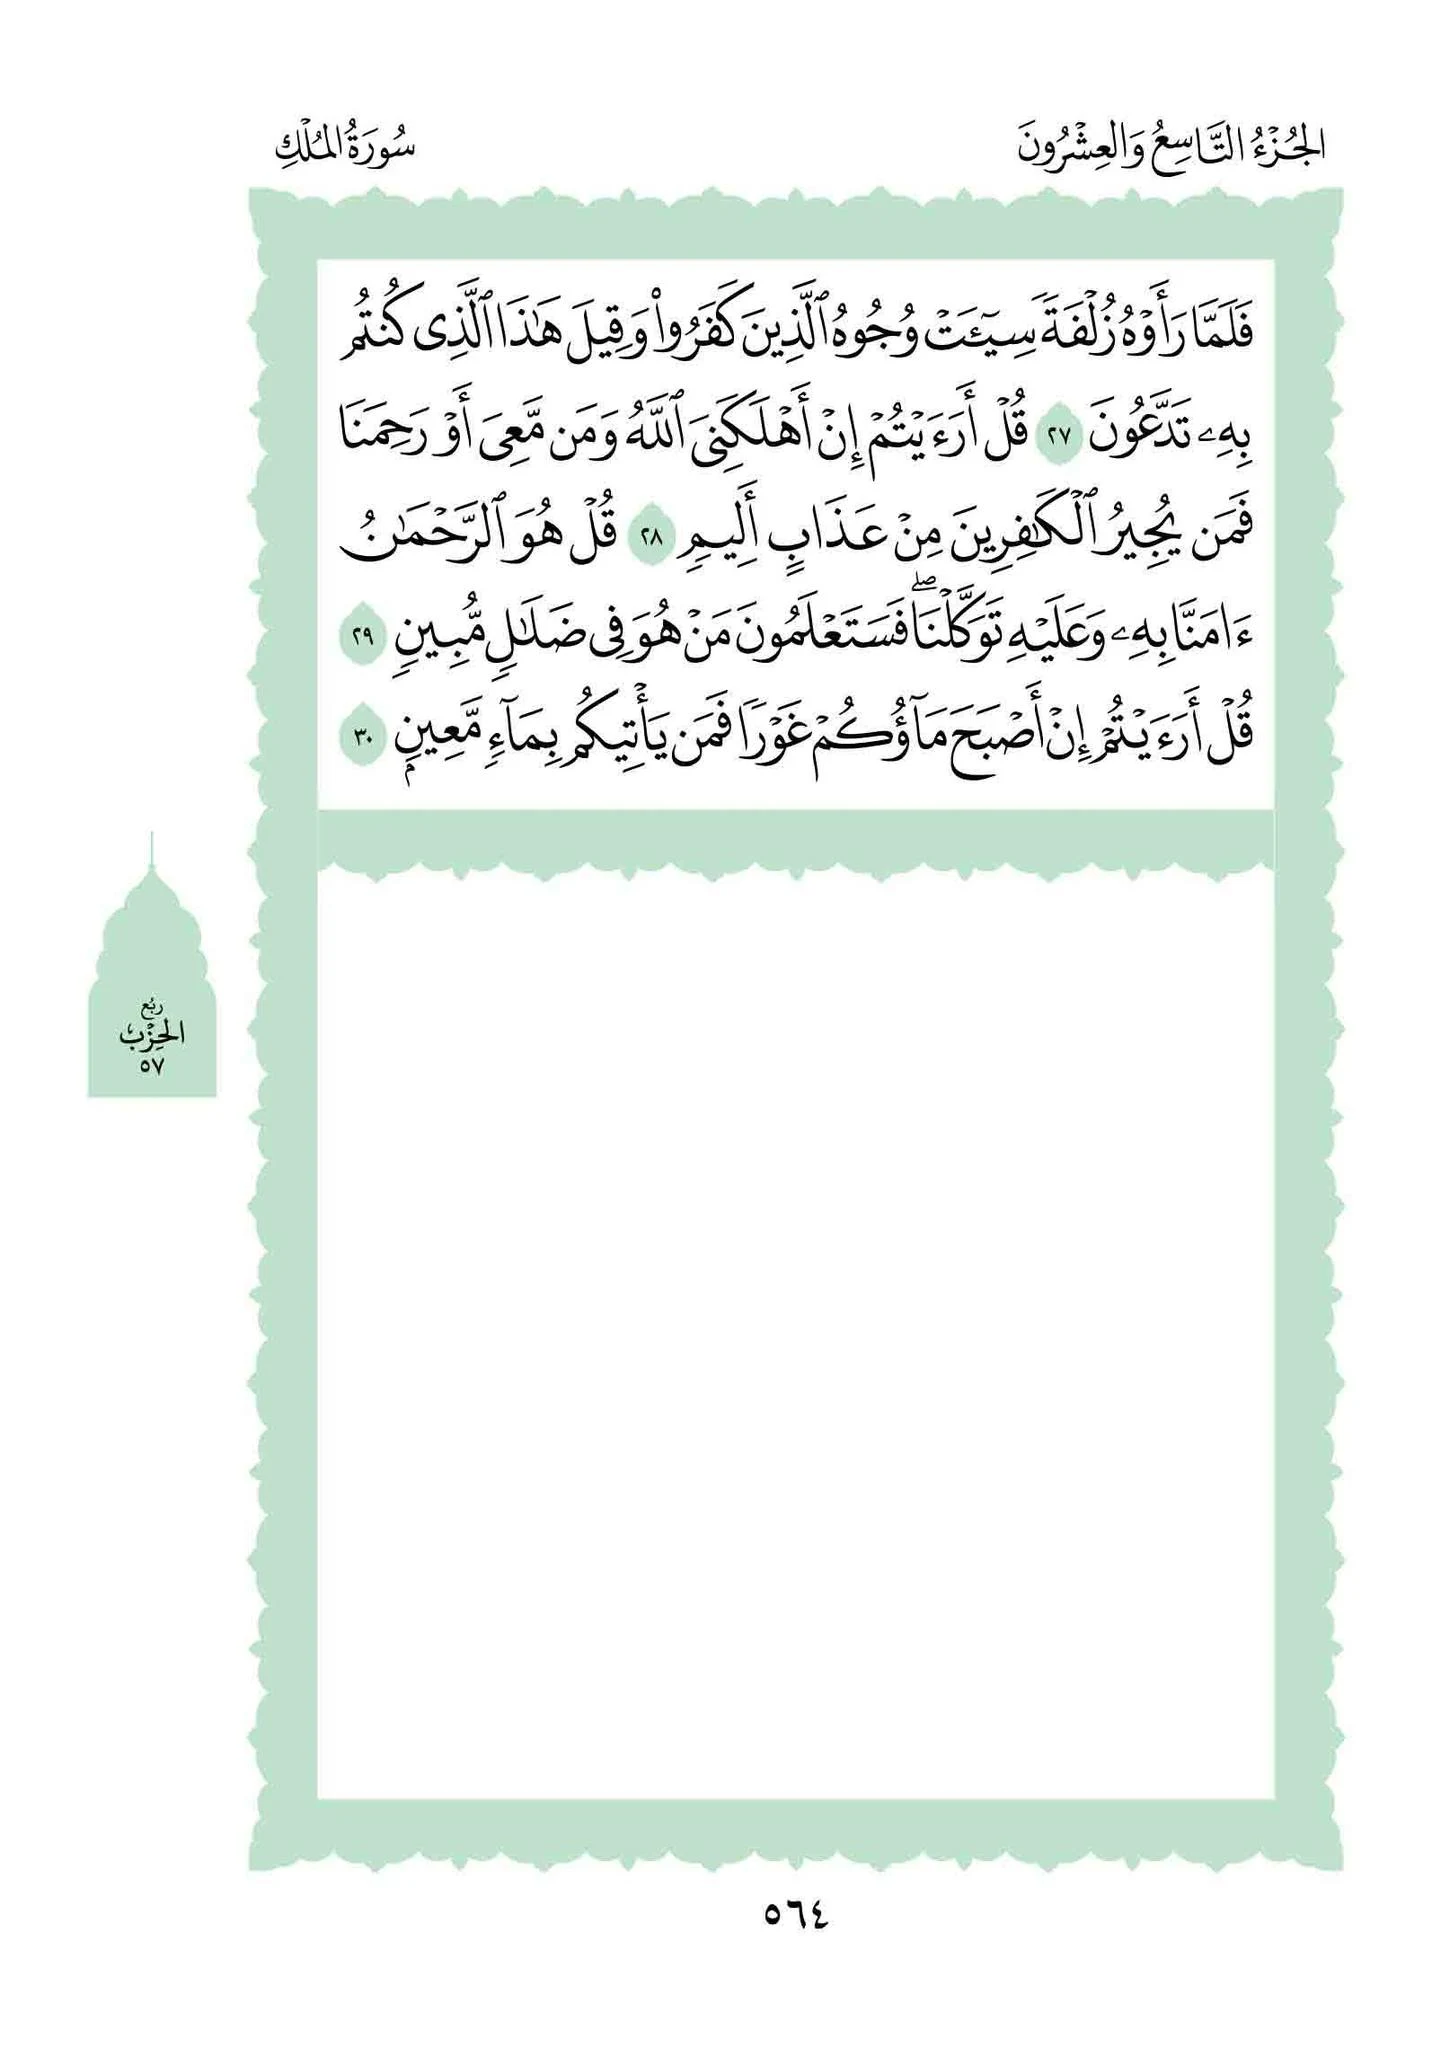 الجُزْءُ التَّاسِعُ وَالعِشْرُونَ
سُورَةُ المُلْكِ
فَلَمَّا رَأَوْهُ زُلْفَةً سِيٓـَٔتْ وُجُوهُ ٱلَّذِينَ كَفَرُوا۟ وَقِيلَ هَٰذَا ٱلَّذِى كُنتُم
بِهِۦ تَدَّعُونَ ٢٧ قُلْ أَرَءَيْتُمْ إِنْ أَهْلَكَنِىَ ٱللَّهُ وَمَن مَّعِىَ أَوْ رَحِمَنَا
فَمَن يُجِيرُ ٱلْكَٰفِرِينَ مِنْ عَذَابٍ أَلِيمٍ ٢٨ قُلْ هُوَ ٱلرَّحْمَٰنُ
ءَامَنَّا بِهِۦ وَعَلَيْهِ تَوَكَّلْنَاۖ فَسَتَعْلَمُونَ مَنْ هُوَ فِى ضَلَٰلٍ مُّبِينٍ ٢٩
قُلْ أَرَءَيْتُمْ إِنْ أَصْبَحَ مَآؤُكُمْ غَوْرًا فَمَن يَأْتِيكُم بِمَآءٍ مَّعِينٍۭ ٣٠
رُبُع
الحِزْبِ
٥٧
٥٦٤